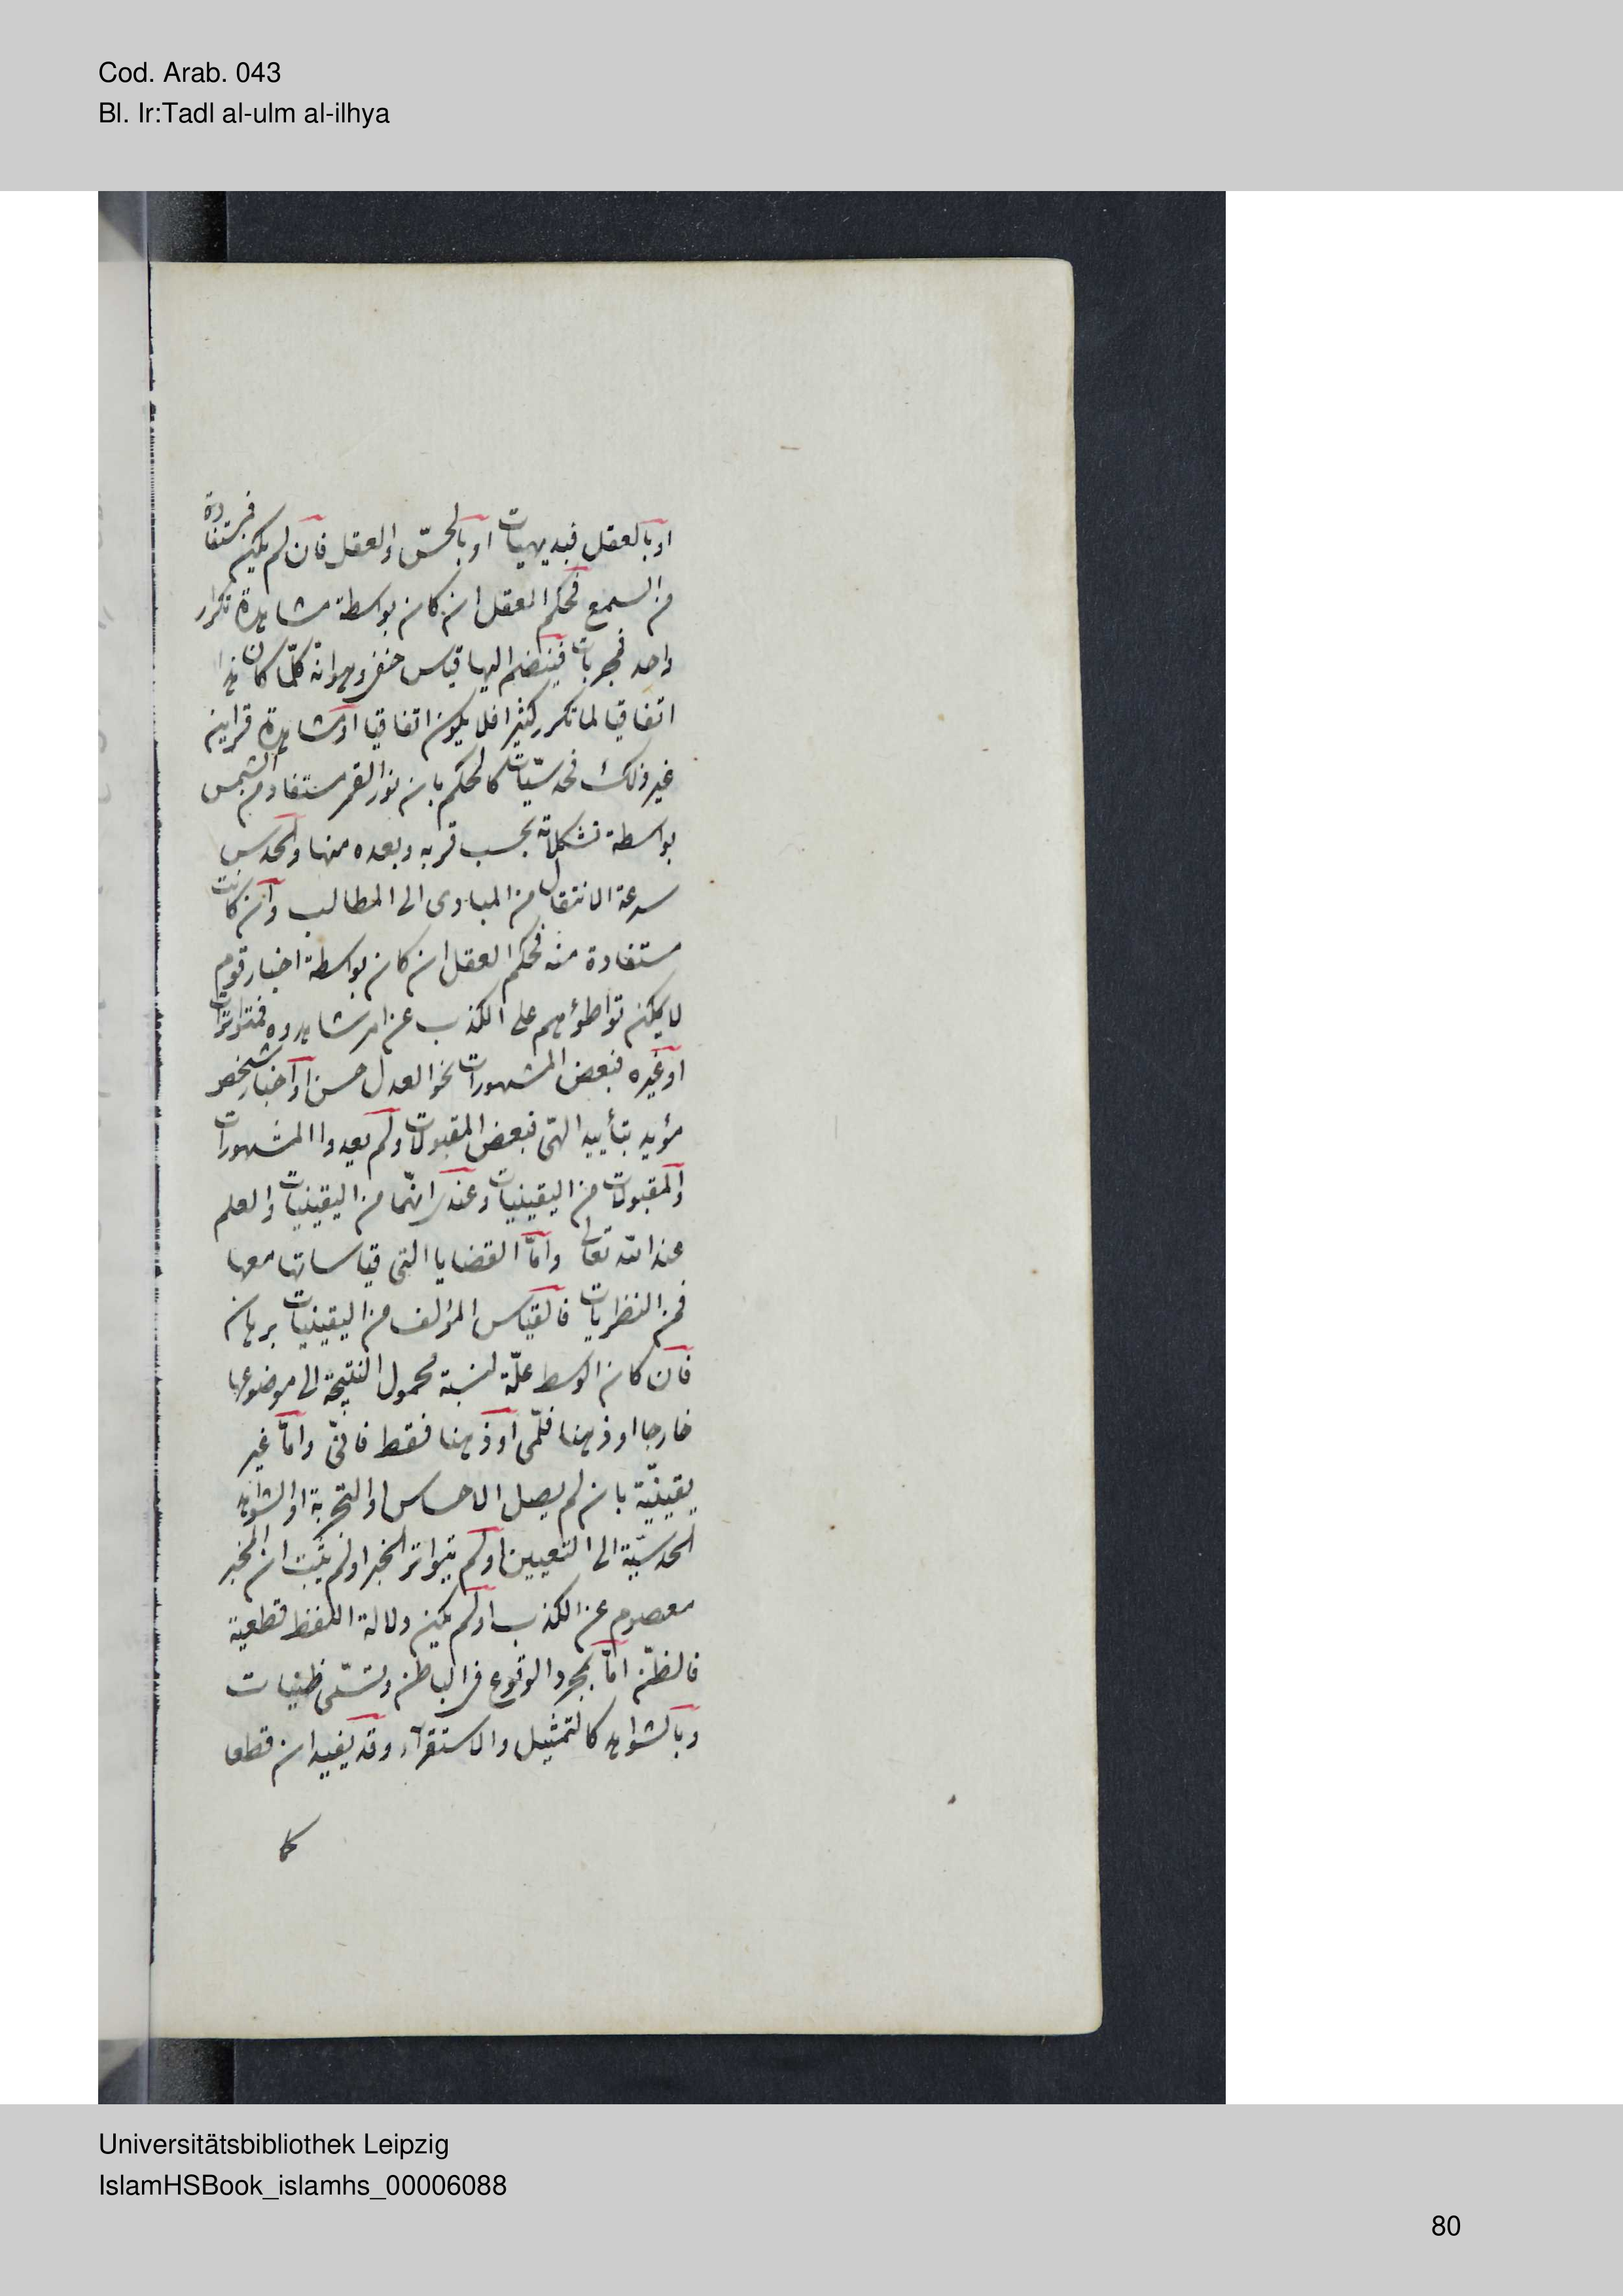 Cod. Arab. 043
Bl. Ir:Tadl al-ulm al-ilhya
او بالعقل فبديهيات او بالحسّ والعقل فان لم يكن مستفادة
من السمع فحكم العقل ان كان بواسطة مشاهدة تكرار
واحد فمجربات فينضم اليها قياس خفى وهو انه كلّما كان هذا
اتفاقيا لما تكرر كثيرا فلا يكون اتفاقيا او مشاهدة قراين
غير ذلك فحدسيّات كالحكم بان نور القمر مستفاد من الشمس
بواسطة تشكلاته بحسب قربه وبعده منها والحدس
سرعة الانتقال من المبادى الى المطالب وان كانت
مستفادة منه فحكم العقل ان كان بواسطة اخبار قوم
لا يمكن تواطؤهم على الكذب عن امر شاهدوه فمتواترات
او غيره فبعض المشهورات نحو العدل حسن او اخبار شخص
مؤيد بتأييد الهىّ فبعض المقبولات ولم يعدوا المشهورات
والمقبولات من اليقينيات وعندى انهّما من اليقينيات والعلم
عند الله تعالى وامّا القضايا التى قياساتها معها
فمن النظريات فالقياس المؤلف من اليقينيات برهان
فان كان الوسط علّة لنسبة محمول النتيجة الى موضوعها
خارجا او ذهنا فلمّى او ذهنا فقط فانىّ وامّا غير
يقينيّة بان لم يصل الاحساس او التجربة او الشواهد
الحدسيّة الى التعيين او لم يتواتر الخبر او لم يثبت ان المخبر
معصوم عن الكذب او لم يكن دلالة اللفظ قطعية
فالظنّ امّا بمجرد الوقوع فى الباطن وتسمّى ظنيات
وبالشواهد كالتمثيل والاستقرآء وقد يفيدان قطعا
كما
Universitätsbibliothek Leipzig
IslamHSBook_islamhs_00006088
80